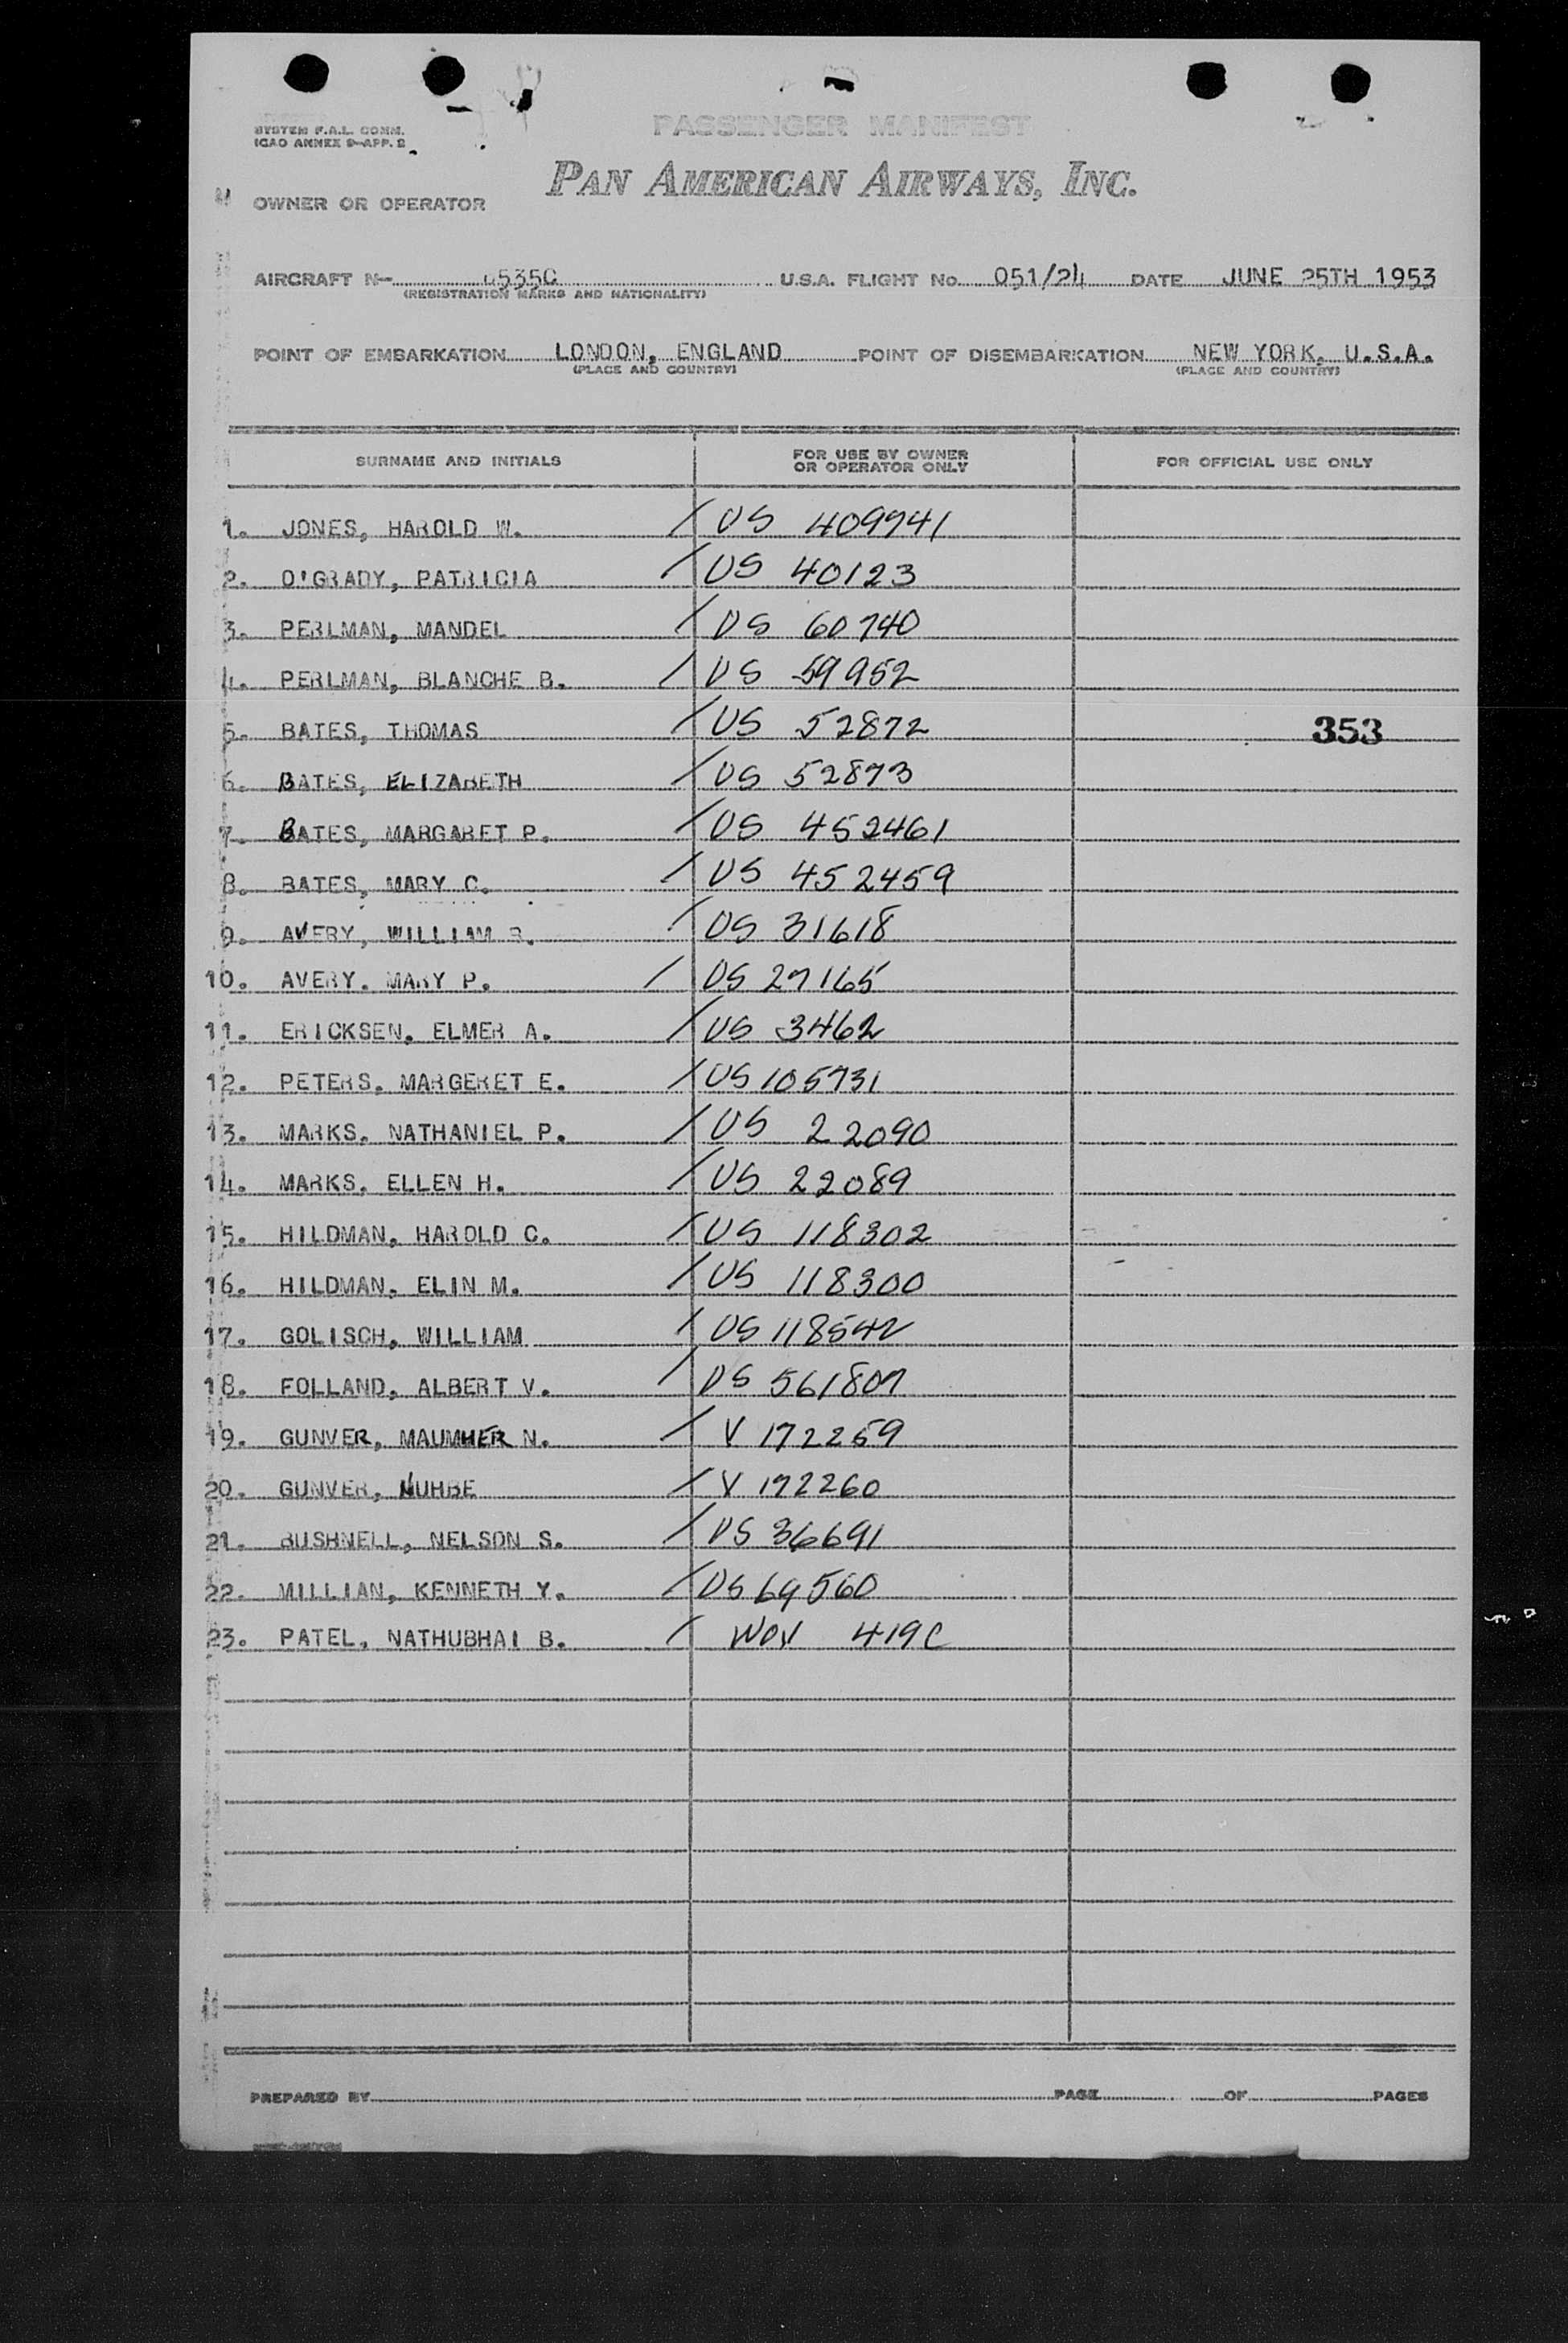 SYSTEM F.A.L. COMM.
ICAO ANNEX 9-APP. 2
PASSENGER MANIFEST
PAN AMERICAN AIRWAYS, INC.
OWNER OR OPERATOR
AIRCRAFT N- U.S.A. FLIGHT No. 051/24 DATE JUNE 25TH 1953
(REGISTRATION MARKS AND NATIONALITY)
POINT OF EMBARKATION LONDON, ENGLAND POINT OF DISEMBARKATION NEW YORK, U.S.A.
(PLACE AND COUNTRY) (PLACE AND COUNTRY)
SURNAME AND INITIALS FOR USE BY OWNER OR OPERATOR ONLY FOR OFFICIAL USE ONLY
1. JONES, HAROLD W. / US 409741
2. O'GRADY, PATRICIA / US 40123
3. PERLMAN, MANDEL / US 60740
4. PERLMAN, BLANCHE B. / US 59952
5. BATES, THOMAS / US 52872 353
6. BATES, ELIZABETH / US 52873
7. BATES, MARGARET P. / US 452461
8. BATES, MARY C. / US 452459
9. AVERY, WILLIAM / US 31618
10. AVERY. MARY P. / US 27165
11. ERICKSEN. ELMER A. / US 3462
12. PETERS. MARGERET E. / US 105731
13. MARKS. NATHANIEL P. / US 22090
14. MARKS. ELLEN H. / US 22089
15. HILDMAN. HAROLD C. / US 118302
16. HILDMAN. ELIN M. / US 118300
17. GOLISCH, WILLIAM / US 118542
18. FOLLAND, ALBERT V. / US 561807
19. GUNVER, MAUMHER N. / V 172259
20. GUNVER, NUHBE / V 172260
21. BUSHNELL, NELSON S. / US 36691
22. MILLIAN, KENNETH Y. / US 69560
23. PATEL, NATHUBHAI B. / 419C
PREPARED BY PAGE OF PAGES